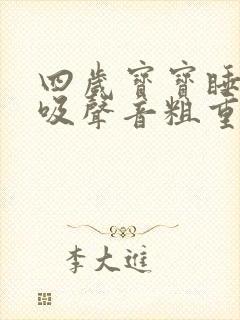 四歲寶寶睡
吸聲音粗重
李大進